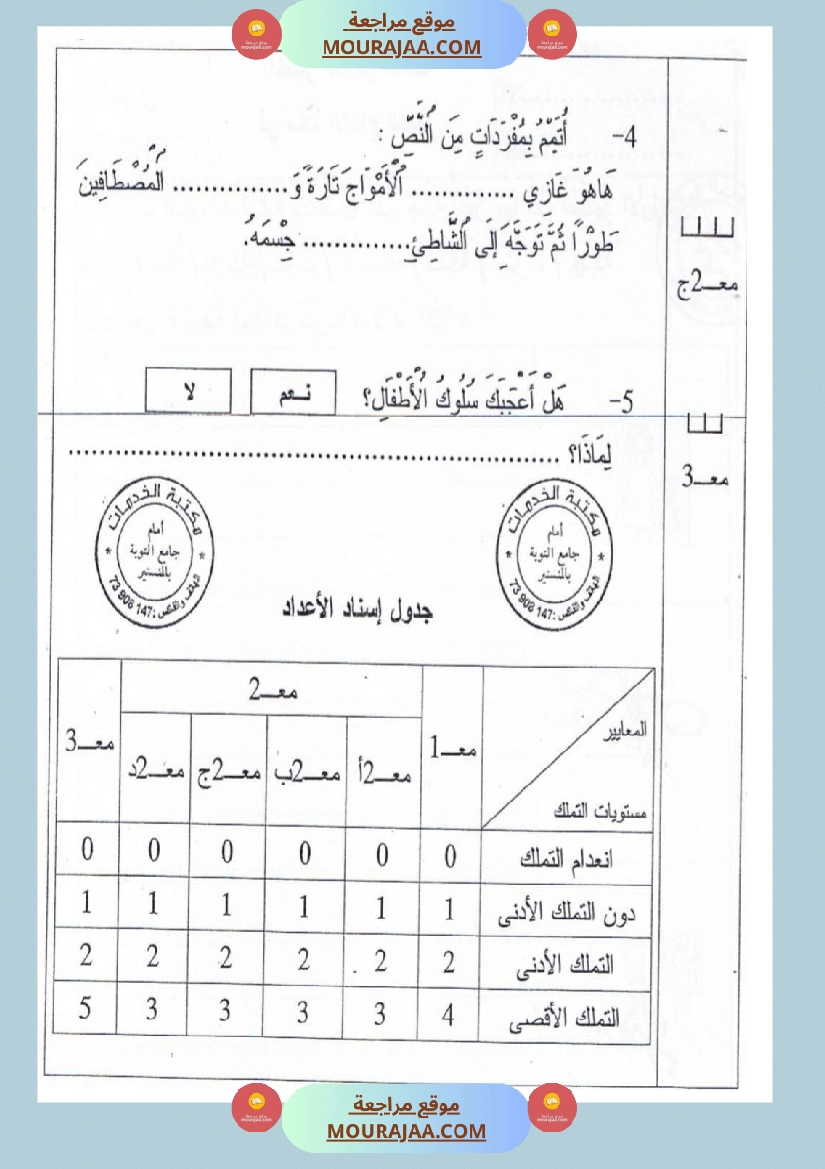 موقع مراجعة
MOURAJAA.COM
4- أُتَمِّمُ بِمُفْرَدَاتٍ مِنَ اُلنَّصِّ :
هَاهُوَ غَازِي .............. اُلْأَمْوَاجَ تَارَةً وَ............... اُلْمُصْطَافِينَ
طَوْرًا ثُمَّ تَوَجَّهَ إِلى اُلشَّاطِئِ.............. جِسْمَهُ.
معـ2ج
5- هَلْ أَعْجَبَكَ سُلُوكُ اُلْأَطْفَالِ؟ نـعم لا
لِمَاذَا؟ ................................................................
معـ3
مكتبة الخدمات
أمام
جامع التوبة
بالمنستير
الهاتف والفاكس: 147 908 73
مكتبة الخدمات
أمام
جامع التوبة
بالمنستير
الهاتف والفاكس: 147 908 73
جدول إسناد الأعداد
المعايير
مستويات التملك
معـ1 معـ2 معـ3
معـ2أ معـ2ب معـ2ج معـ2د
انعدام التملك 0 0 0 0 0 0
دون التملك الأدنى 1 1 1 1 1 1
التملك الأدنى 2 2 2 2 2 2
التملك الأقصى 4 3 3 3 3 5
موقع مراجعة
MOURAJAA.COM